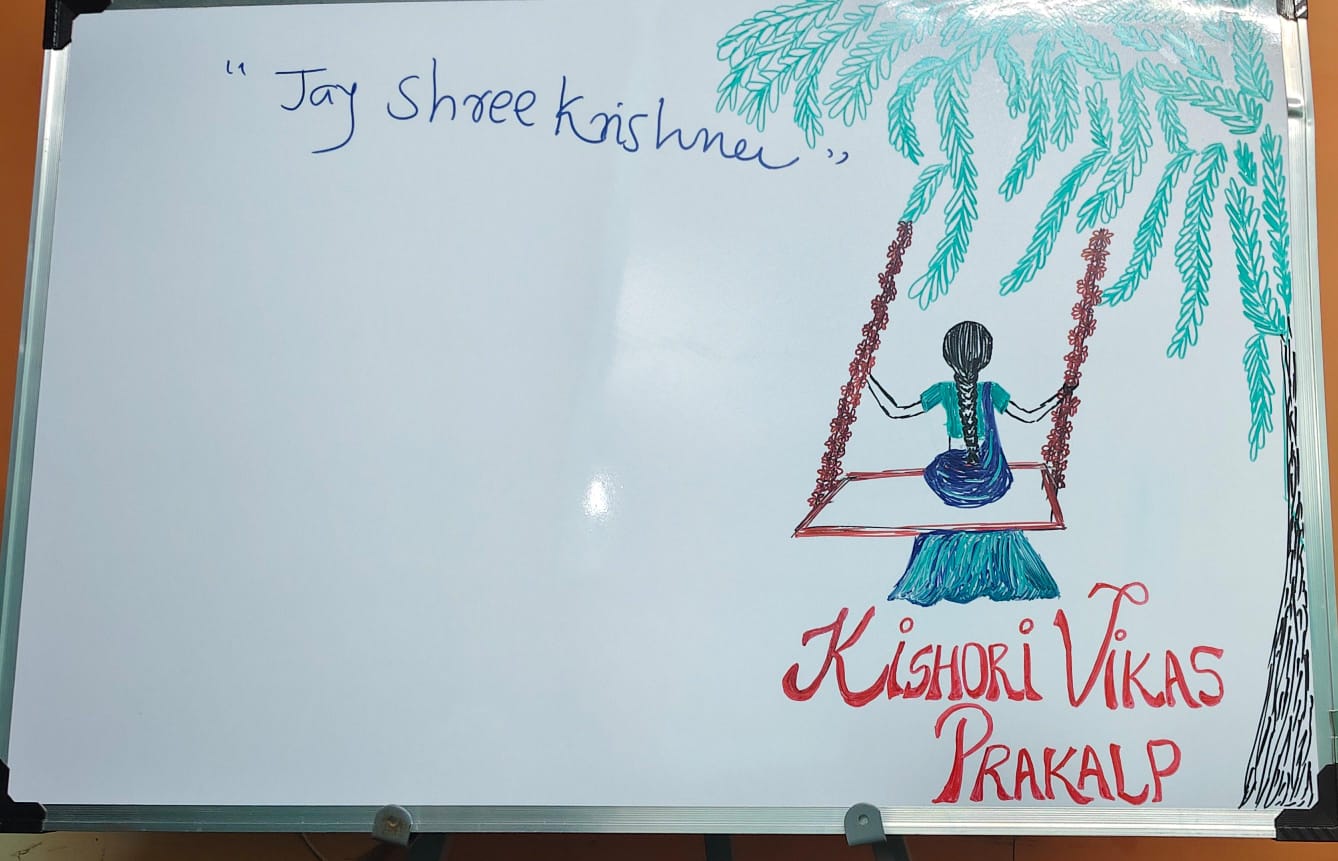 "Jay Shree Krishna"
KISHORI VIKAS
PRAKALP